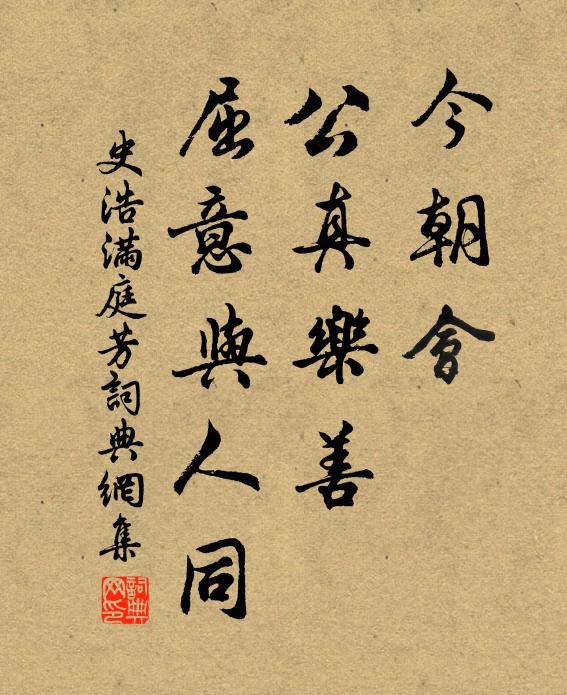 今朝會
公真樂善
屈意與人同
史浩滿庭芳詞典網集
詞典网印